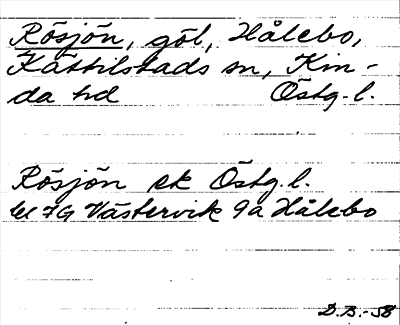 Rösjön, göl, Hålebo,
Kättilstads sn, Kin-
da hd Östg. l.
Rösjön ek Östg. l.
bl 7G Västervik 9a Hålebo
D.B.-58